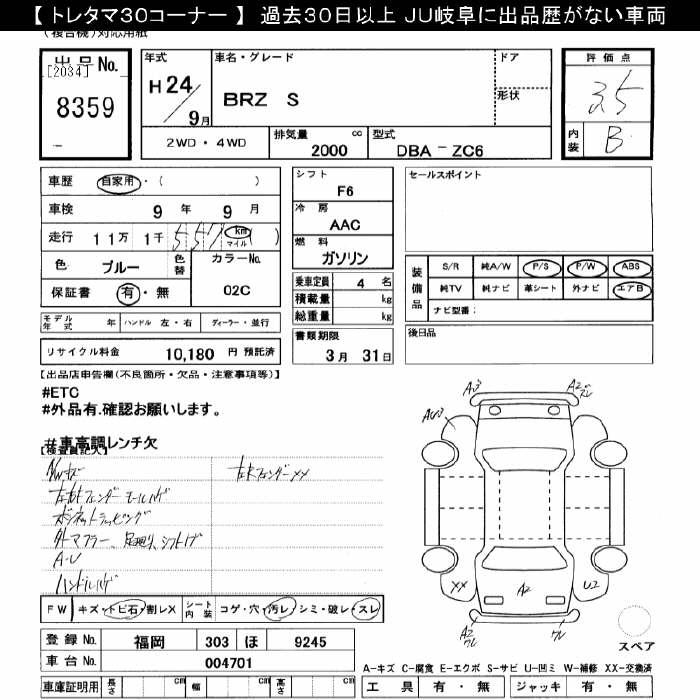 【 トレタマ30コーナー 】 過去30日以上 JU岐阜に出品歴がない車両
(複合機)対応用紙
出品 No.
[2034]
8359
年式
H 24/9月
車名・グレード
BRZ S
ドア
形状
評価点
3.5
内装
B
2WD・4WD
排気量 cc
2000
型式
DBA－ZC6
車歴 自家用・( )
車検 9 年 9 月
走行 11万 1千 557 km マイル ( )
色 ブルー
色替
カラーNo.
02C
保証書 有・無
モデル年式 年 ハンドル 左・右 ディーラー・並行
リサイクル料金 10,180 円 預託済
シフト
F6
冷房
AAC
燃料
ガソリン
乗車定員 4 名
積載量 kg
総重量 kg
書類期限
3月 31日
セールスポイント
装備品
S/R 純A/W P/S P/W ABS
純TV 純ナビ 革シート 外ナビ エアB
ナビ型番：
後日品
【出品店申告欄(不良箇所・欠品・注意事項等)】
#ETC
#外品有.確認お願いします。
#車高調レンチ欠
【検査員記入】
左右フェンダーXX
左右フェンダーモールハゲ
ボンネットラッピング
外マフラー、足廻り、シフトノブ
A-U
ハンドルハゲ
FW キズ・トビ石・割レX
シート内装 コゲ・穴・汚レ・シミ・破レ・スレ
登録 No. 福岡 303 ほ 9245
車台 No. 004701
車庫証明用 長さ cm 幅 cm 高さ cm
A3
XX
A2
U2
スペア
A-キズ C-腐食 E-エクボ S-サビ U-凹ミ W-補修 XX-交換済
工具 有・無 ジャッキ 有・無